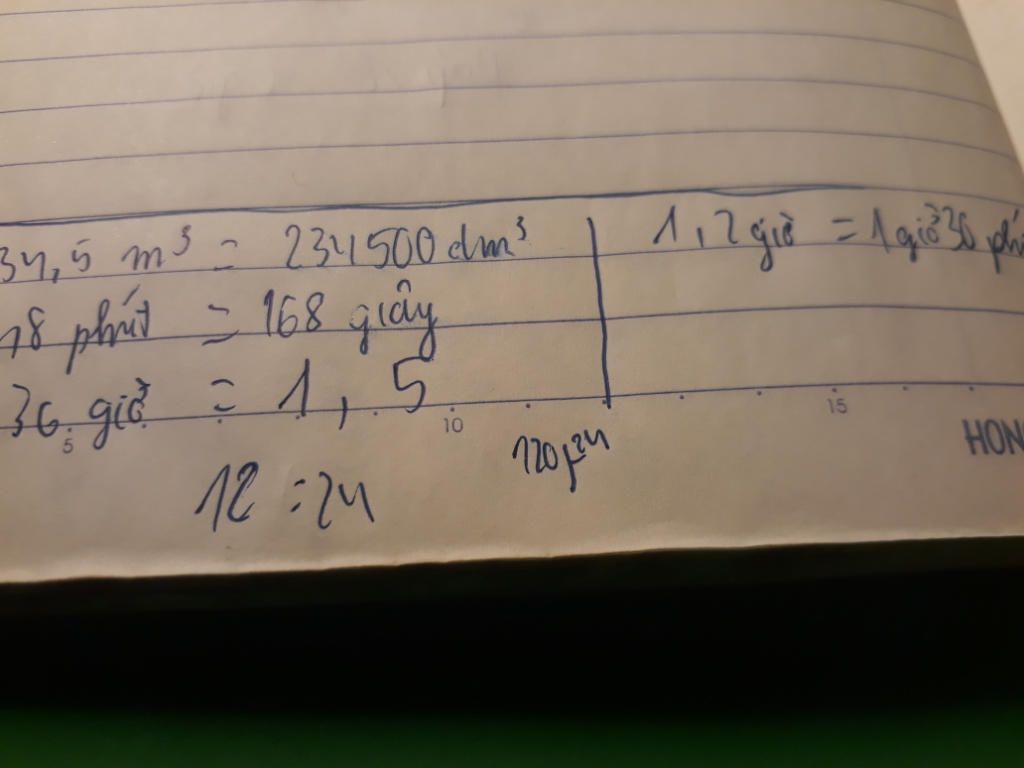 34,5 m³ = 234500 dm³
1,2 giờ = 1 giờ 30 ph
18 phút = 168 giây
36 giờ = 1,5
5 10 15
HON
12 : 24
120 24